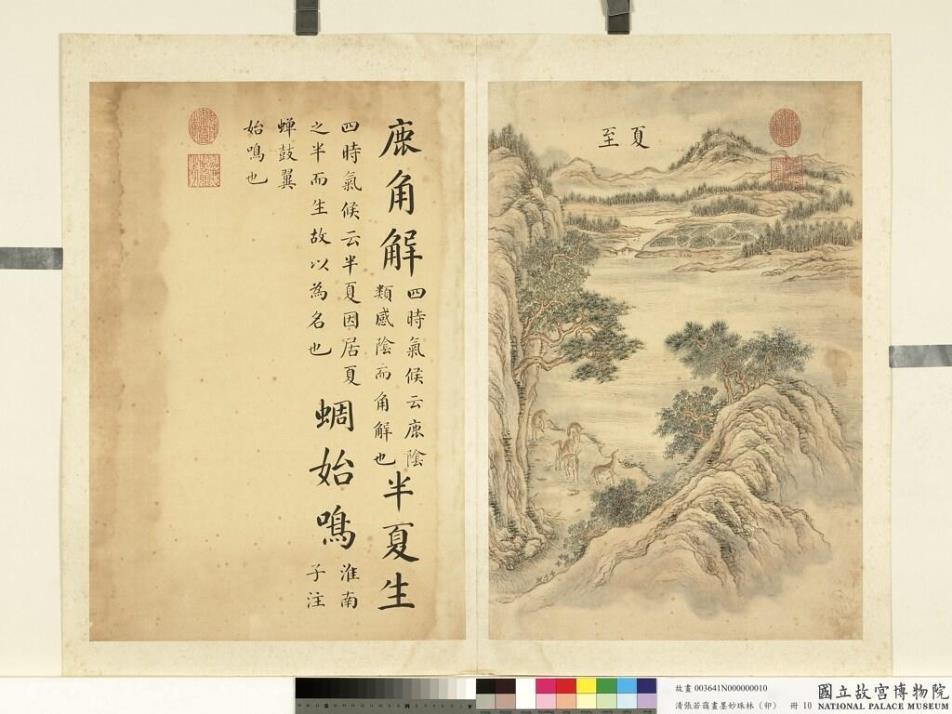 夏至
鹿角解
四時氣候云鹿陰
類感陰而角解也
半夏生
四時氣候云半夏因居夏
之半而生故以為名也
蜩始鳴
淮南
子注
蟬鼓翼
始鳴也
故畫 003641N000000010
清張若靄畫墨妙珠林（卯） 冊 10
國立故宮博物院
NATIONAL PALACE MUSEUM